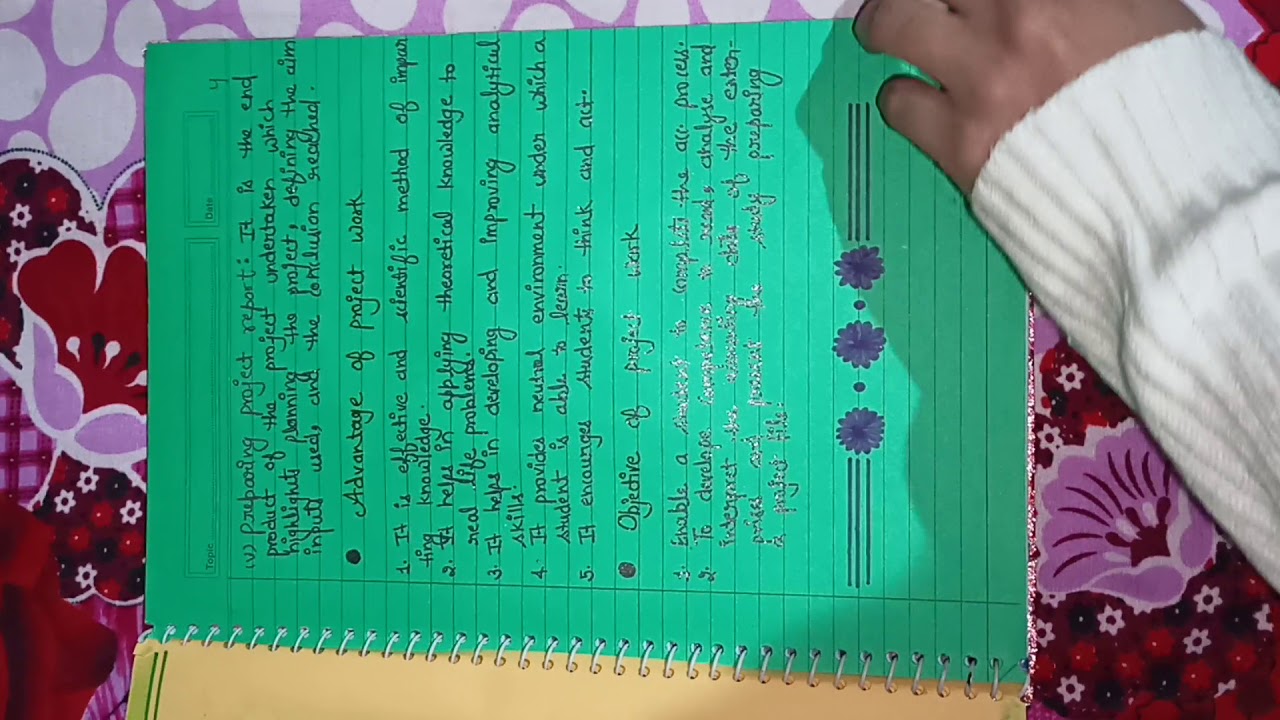 Topic
Date
4
(v) Preparing project report: It is the end
product of the project undertaken which
highlights planning the project, defining the aim
input used, and the conclusion reached.
Advantage of project work
1. It is effective and scientific method of impar
ting knowledge.
2. It helps in applying theoretical knowledge to
real life problems.
3. It helps in developing and improving analytical
skills.
4. It provides neutral environment under which a
student is able to learn.
5. It encounges students to think and act.
Objective of project work
1. Enable a student to complete the acc process.
2. To develope competence to record, analyse and
interpret the accounting data of the enter-
prise and present the study preparing
a project file.